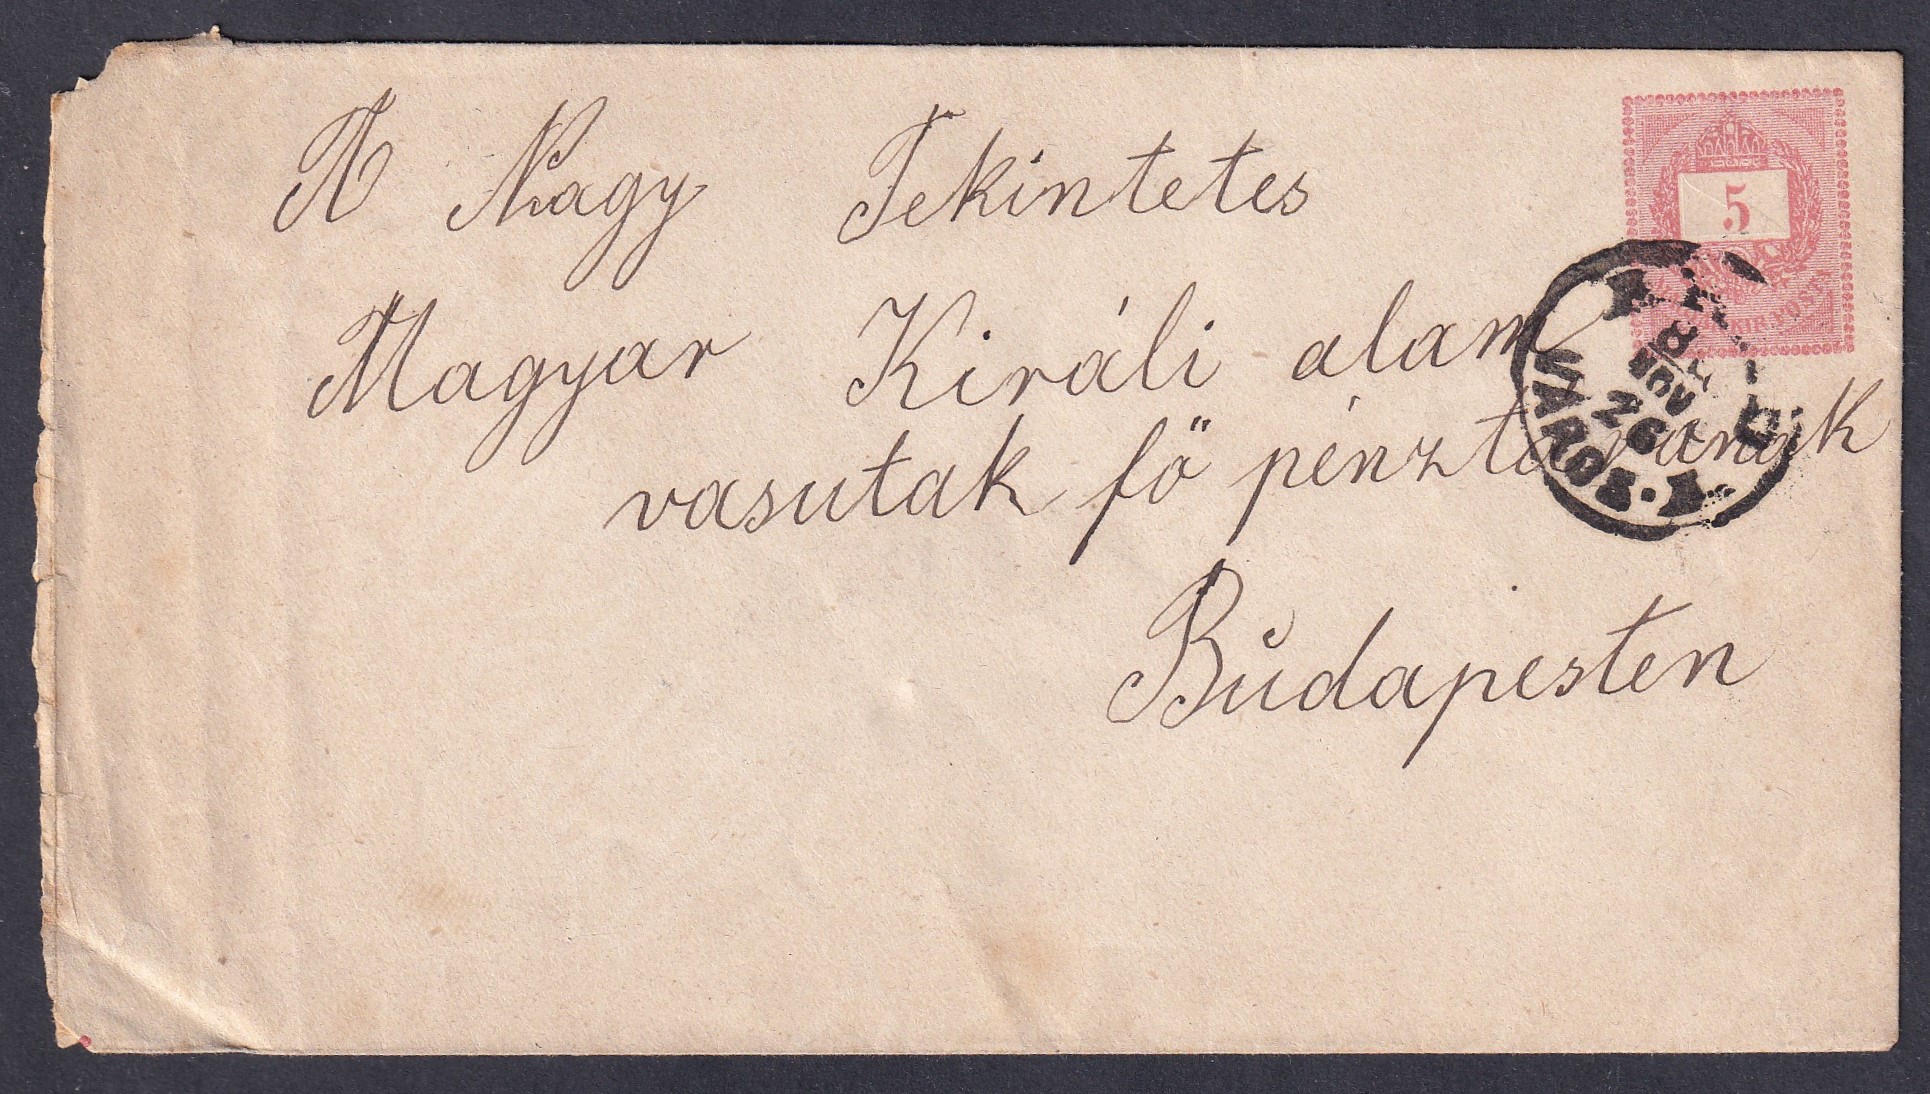 A Nagy Tekintetes
Magyar Királi alam
vasutak fő pénztáranak
Budapesten
5
KIR. POSTA
NOV
26
VÁROS